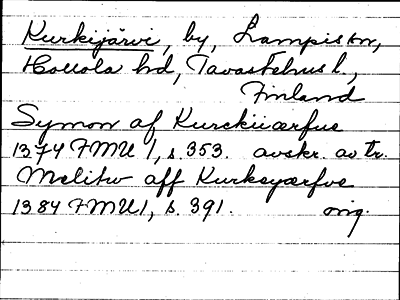 Kurkijärvi, by, Lampis kn,
Hollola hd, Tavastehus l.,
Finland
Symon af Kurckiiærfue
1374 FMU 1, s. 353. avskr. av tr.
Melitw aff Kurkeyærfve
1384 FMU 1, s. 391. orig.